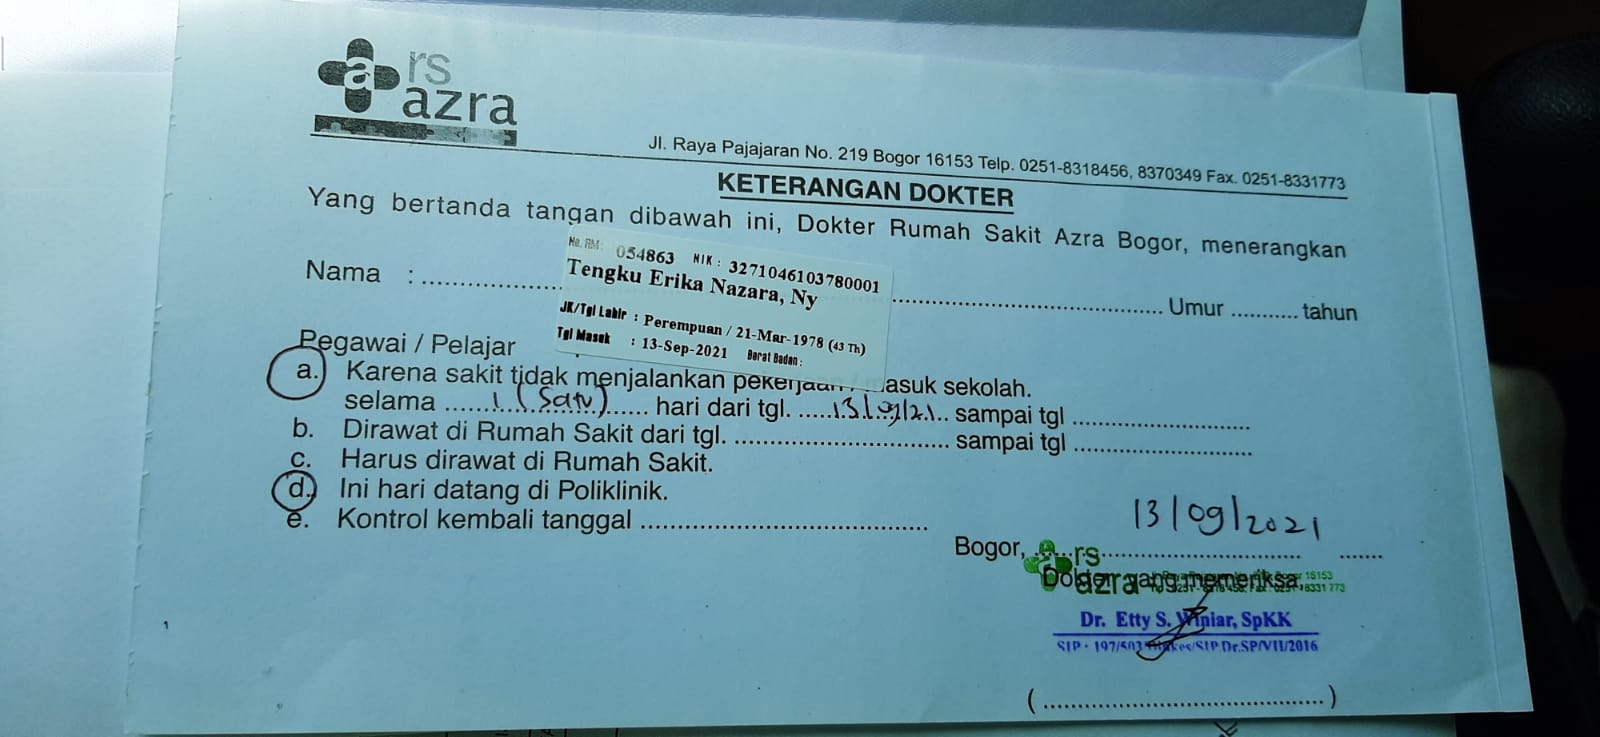 rs
azra
Jl. Raya Pajajaran No. 219 Bogor 16153 Telp. 0251-8318456, 8370349 Fax. 0251-8331773
KETERANGAN DOKTER
Yang bertanda tangan dibawah ini, Dokter Rumah Sakit Azra Bogor, menerangkan
No. RM: 054863 NIK : 3271046103780001
Tengku Erika Nazara, Ny
Nama : Umur tahun
JK/Tgl Lahir : Perempuan / 21-Mar-1978 (43 Th)
Tgl Masuk : 13-Sep-2021 Berat Badan :
Pegawai / Pelajar
a. Karena sakit tidak menjalankan pekerjaan / masuk sekolah.
selama 1 (satu) hari dari tgl. 13/09/21 sampai tgl
b. Dirawat di Rumah Sakit dari tgl. sampai tgl
c. Harus dirawat di Rumah Sakit.
d. Ini hari datang di Poliklinik.
e. Kontrol kembali tanggal
13/09/2021
Bogor,
rs
azra
Dokter yang memeriksa,
Dr. Etty S. Winiar, SpKK